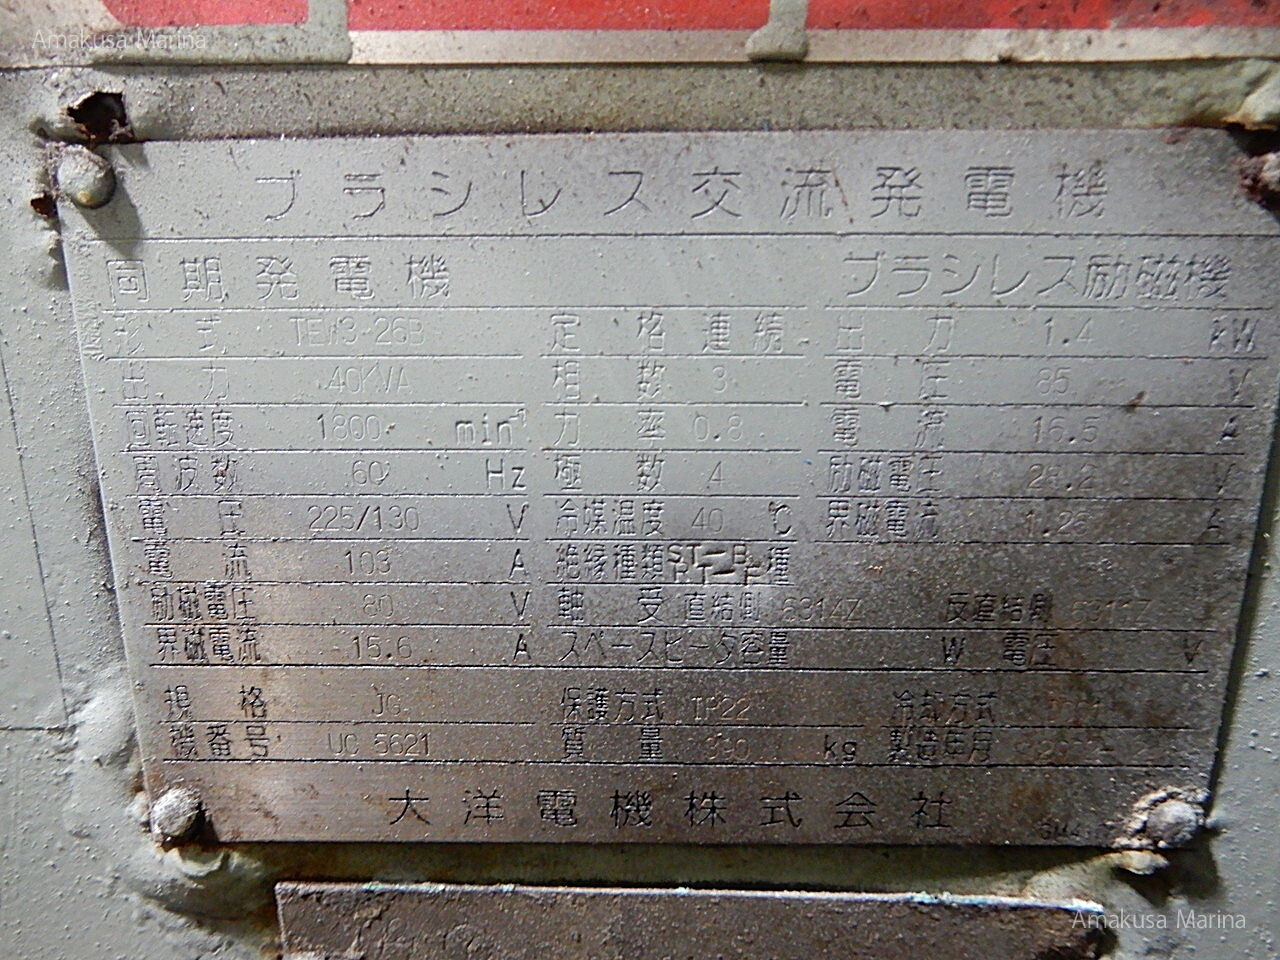 Amakusa Marina
ブラシレス交流発電機
同期発電機 ブラシレス励磁機
形式 TEW3-26B 定格 連続 出力 1.4 kW
出力 40KVA 相数 3 電圧 85 V
回転速度 1800 min⁻¹ 力率 0.8 電流 16.5 A
周波数 60 Hz 極数 4 励磁電圧 28.2 V
電圧 225/130 V 冷媒温度 40 ℃ 界磁電流 1.26 A
電流 103 A 絶縁種類 ST-B RT-F 種
励磁電圧 80 V 軸受 直結側 6314Z 反直結側
界磁電流 15.6 A スペースヒータ容量 W 電圧 V
規格 JG 保護方式 IP22 冷却方式
機番号 UC 5621 質量 390 kg 製造年月
大洋電機株式会社
Amakusa Marina